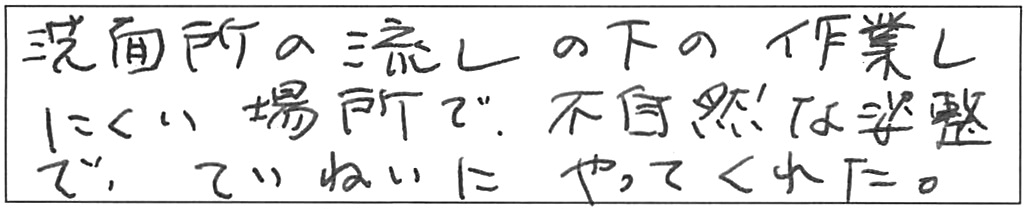 洗面所の流しの下の作業し
にくい場所で、不自然な姿整
で、ていねいにやってくれた。